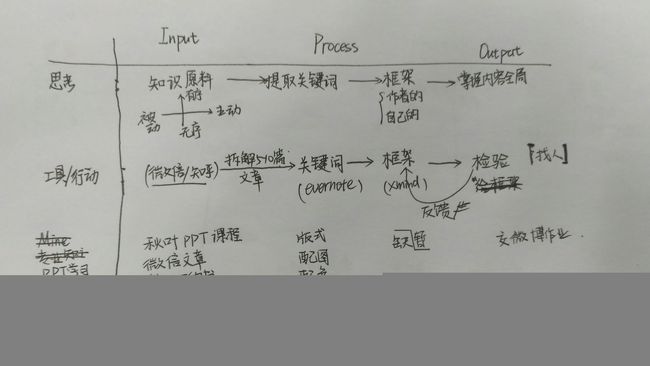 Input Process Output
思考 知识原料 → 提取关键词 → 框架 → 掌握内容全局
有序 作者的
被动 主动 自己的
无序
工具/行动 (微信/知乎) 拆解5-10篇文章 → 关键词 → 框架 → 检验 [找人]
(evernote) (xmind)
反馈
秋叶PPT课程 版式 暂 交微博作业
微信文章 配图
PPT学习